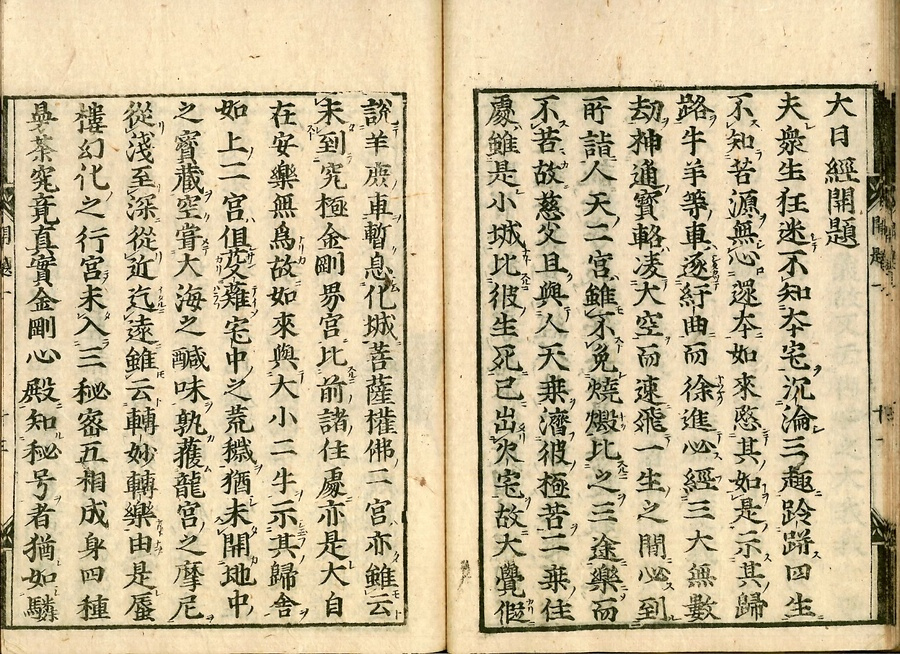 大日經開題
夫衆生狂迷不知夲宅沉淪三趣跉跰四生
不知苦源無心還夲如來愍其如是示其歸
路牛羊等車逐紆曲而徐進必經三大無數
劫神通寳輅凌大空而速飛一生之間必到
所詣人天二宮雖不免燒燬比之三途樂而
不苦故慈父且與人天乗濟彼極苦二乗住
處雖是小城比彼生死已出火宅故大覺假
說羊鹿車暫息化城菩薩權佛二宮亦雖云
未到究極金剛界宮比前諸住處亦是大自
在安樂無爲故如來與大小二牛示其歸舎
如上二宮但芟薙宅中之荒穢猶未開地中
之寳藏空甞大海之醎味孰獲龍宮之摩尼
從淺至深從近迄遠雖云轉妙轉樂由是蜃
樓幻化之行宮未入三秘密五相成身四種
曼荼究竟真實金剛心殿知秘号者猶如驎